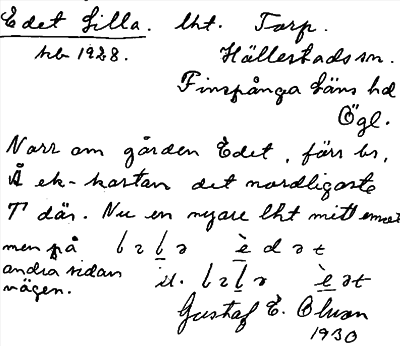 Edet Lilla. lht. Torp.
kb 1928. Hällestads sn.
Finspånga läns hd
Ögl.
Norr om gården Edet, förr bs,
Å ek-kartan det nordligaste
T där. Nu en nyare lht mitt emot
men på
andra sidan
vägen.
Gustaf E. Olson
1930